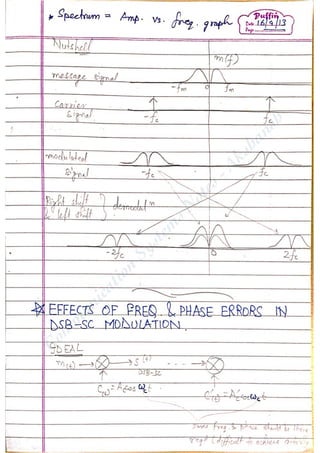 * Spectrum = Amp. vs. freq. graph
Puffin
Date 16/8/13
Page
Nutshell
M(f)
message signal
-fm 0 fm
Carrier
Signal
-fc fc
modulated
signal
-fc fc
Right shift
& left shift } demodulⁿ
-2fc 0 2fc
* EFFECTS OF FREQ. & PHASE ERRORS IN
DSB-SC MODULATION.
IDEAL
m(t) → ⊗ → S(t) - - - → ⊗
DSB-SC
C(t) = Ac cos ωct C'(t) = A'c cos ωct
same freq. & phase should be there
(difficult to achieve